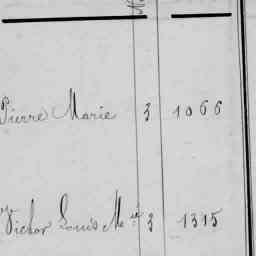 Pierre Marie 3 1066
Victor Louis M el 3 1315